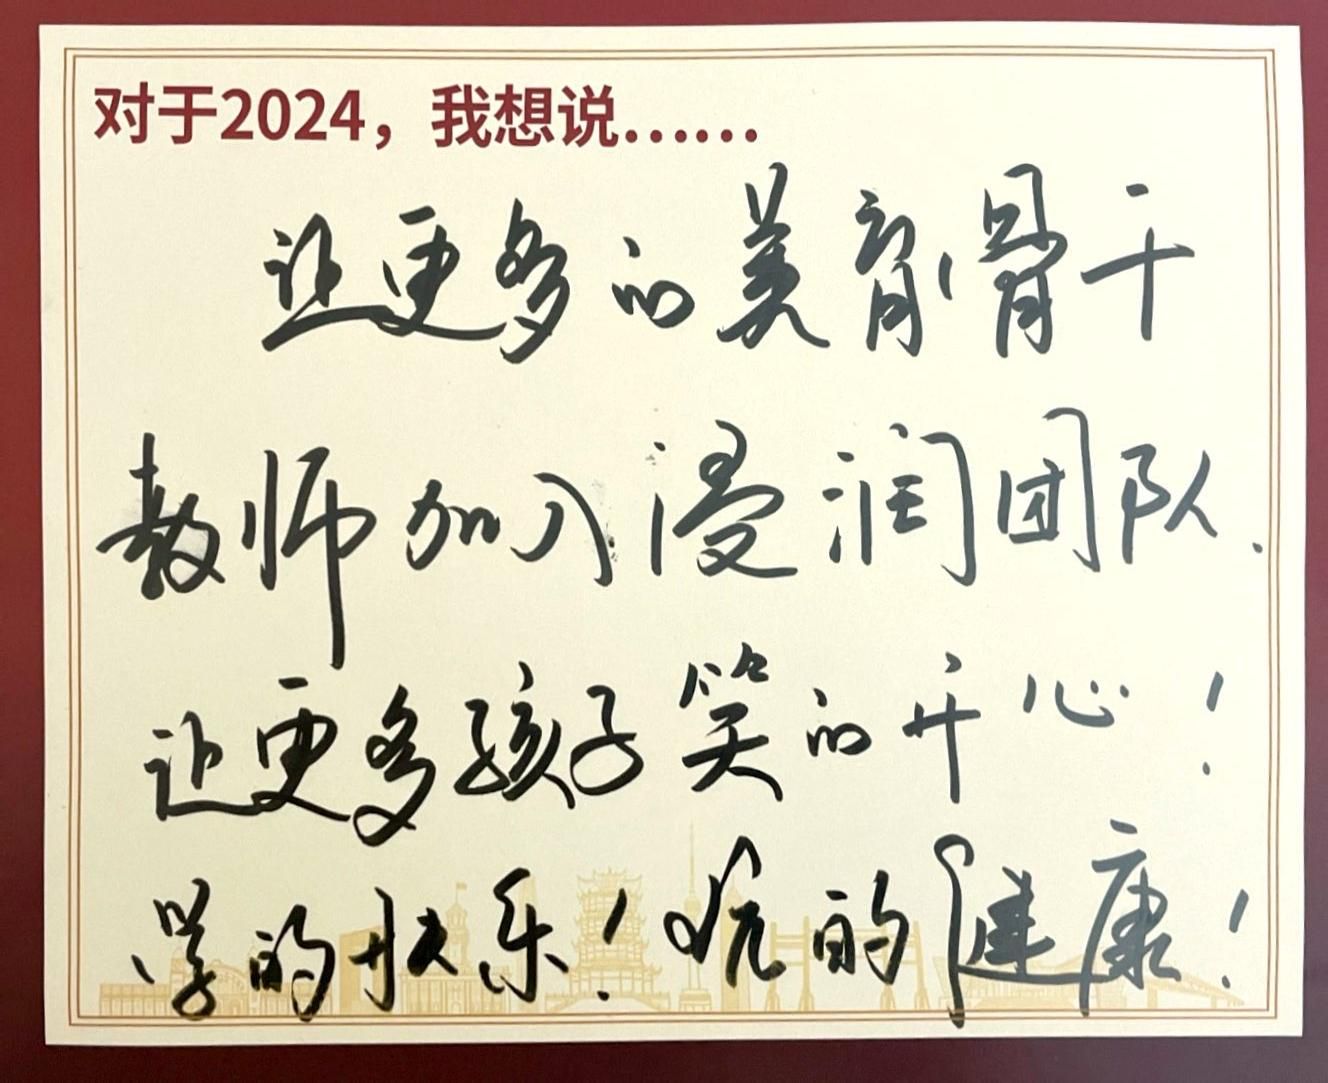 对于2024，我想说……
让更多的美育骨干
教师加入浸润团队.
让更多孩子笑的开心！
学的快乐！玩的健康！